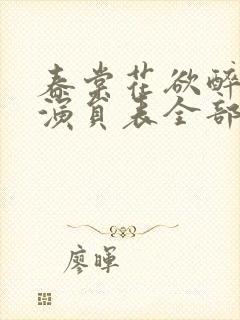 春棠花欲醉
演员表全部
廖暉